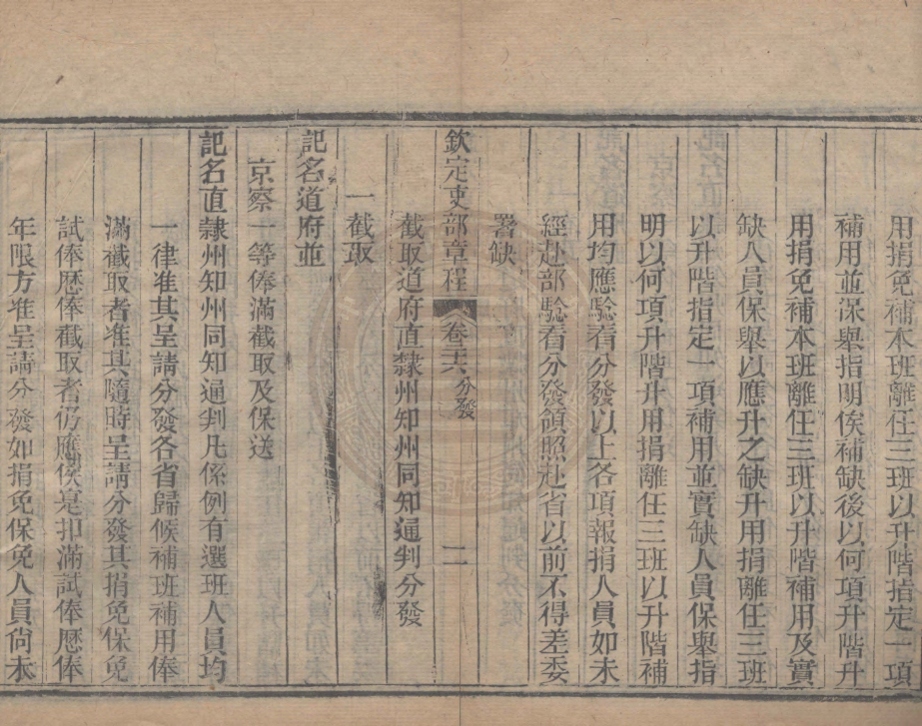 用捐免補本班離任三班以升階指定一項
補用並深舉指明俟補缺後以何項升階升
用捐免補本班離任三班以升階補用及實
缺人員保舉以應升之缺升用捐離任三班
以升階指定一項補用並實缺人員保舉指
明以何項升階升用捐離任三班以升階補
用均應驗看分發以上各項報捐人員如未
經赴部驗看分發領照赴省以前不得差委
署缺
欽定吏部章程 卷三六 分發 二
截取道府直隸州知州同知通判分發
一截取
記名道府並
京察一等俸滿截取及保送
記名直隸州知州同知通判凡係例有選班人員均
一律准其呈請分發各省歸候補班補用俸
滿截取者准其隨時呈請分發其捐免保免
試俸歷俸截取者仍應俟是扣滿試俸歷俸
年限方准呈請分發如捐免保免人員尚未